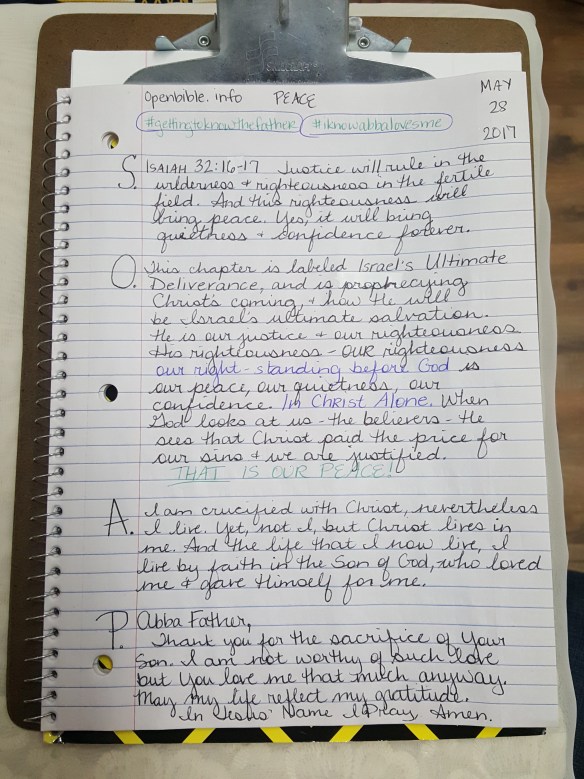 Openbible.info PEACE
MAY
28
2017
#gettingtoknowthefather #iknowabbalovesme
S. ISAIAH 32:16-17 Justice will rule in the
wilderness + righteousness in the fertile
field. And this righteousness will
bring peace. Yes, it will bring
quietness + confidence forever.
O. This chapter is labeled Israel's Ultimate
Deliverance, and is prophecying
Christ's coming, + how He will
be Israel's ultimate salvation.
He is our justice + our righteousness
His righteousness - OUR righteousness
our right-standing before God is
our peace, our quietness, our
confidence. In Christ Alone. When
God looks at us - the believers - He
sees that Christ paid the price for
our sins + we are justified.
THAT IS OUR PEACE!
A. I am crucified with Christ, nevertheless
I live. Yet, not I, but Christ lives in
me. And the life that I now live, I
live by faith in the Son of God, who loved
me + gave Himself for me.
P. Abba Father,
Thank you for the sacrifice of Your
Son. I am not worthy of such love
but You love me that much anyway.
May my life reflect my gratitude.
In Jesus' Name I Pray, Amen.